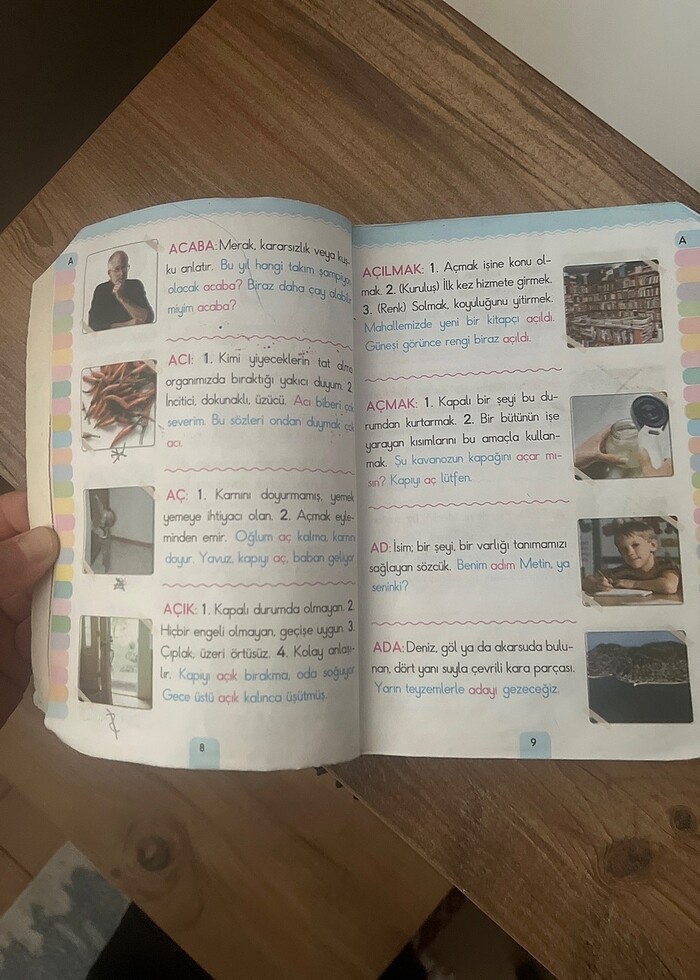 A
ACABA: Merak, kararsızlık veya kuş-
ku anlatır. Bu yıl hangi takım şampiyon
olacak acaba? Biraz daha çay alabilir
miyim acaba?
ACI: 1. Kimi yiyeceklerin tat alma
organımızda bıraktığı yakıcı duyum. 2.
İncitici, dokunaklı, üzücü. Acı biberi çok
severim. Bu sözleri ondan duymak çok
acı.
AÇ: 1. Karnını doyurmamış, yemek
yemeye ihtiyacı olan. 2. Açmak eyle-
minden emir. Oğlum aç kalma, karnını
doyur. Yavuz, kapıyı aç, baban geliyor.
AÇIK: 1. Kapalı durumda olmayan. 2.
Hiçbir engeli olmayan, geçişe uygun. 3.
Çıplak, üzeri örtüsüz. 4. Kolay anlaşı-
lır. Kapıyı açık bırakma, oda soğuyor.
Gece üstü açık kalınca üşütmüş.
8
A
AÇILMAK: 1. Açmak işine konu ol-
mak. 2. (Kuruluş) İlk kez hizmete girmek.
3. (Renk) Solmak, koyuluğunu yitirmek.
Mahallemizde yeni bir kitapçı açıldı.
Güneşi görünce rengi biraz açıldı.
AÇMAK: 1. Kapalı bir şeyi bu du-
rumdan kurtarmak. 2. Bir bütünün işe
yarayan kısımlarını bu amaçla kullan-
mak. Şu kavanozun kapağını açar mı-
sın? Kapıyı aç lütfen.
AD: İsim; bir şeyi, bir varlığı tanımamızı
sağlayan sözcük. Benim adım Metin, ya
seninki?
ADA: Deniz, göl ya da akarsuda bulu-
nan, dört yanı suyla çevrili kara parçası.
Yarın teyzemlerle adayı gezeceğiz.
9